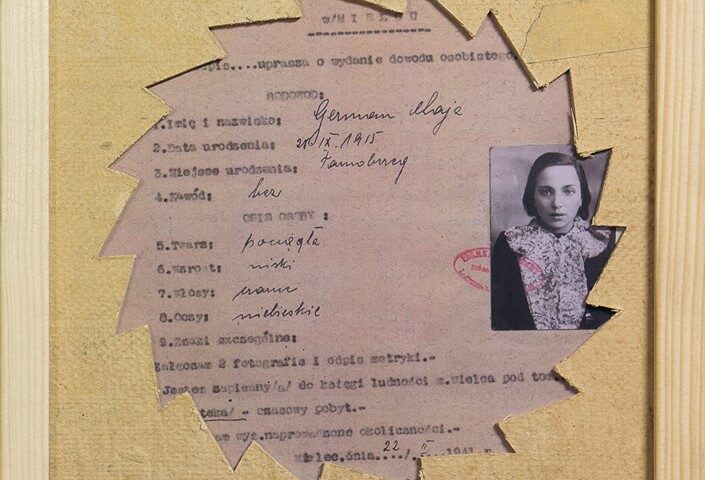 w/MIELCU
....uprasza o wydanie dowodu osobistego.
RODOWOD:
1.Imię i nazwisko: German Maja
2.Data urodzenia: 21 IX. 1915
3.Miejsce urodzenia: Tarnobrzeg
4.Zawód: bez
OPIS OSOBY :
5.Twarz: pociągła
6.Wzrost: niski
7.Włosy: czarne
8.Oczy: niebieskie
9.Znaki szczególne:
Załączam 2 fotografie i odpis metryki.-
Jestem zapisany/a/ do księgi ludności m.Mielca pod
teka/ - czasowy pobyt.-
wyż.naprowadzone okoliczności.-
Mielec,dnia 22/.II 1941 r.